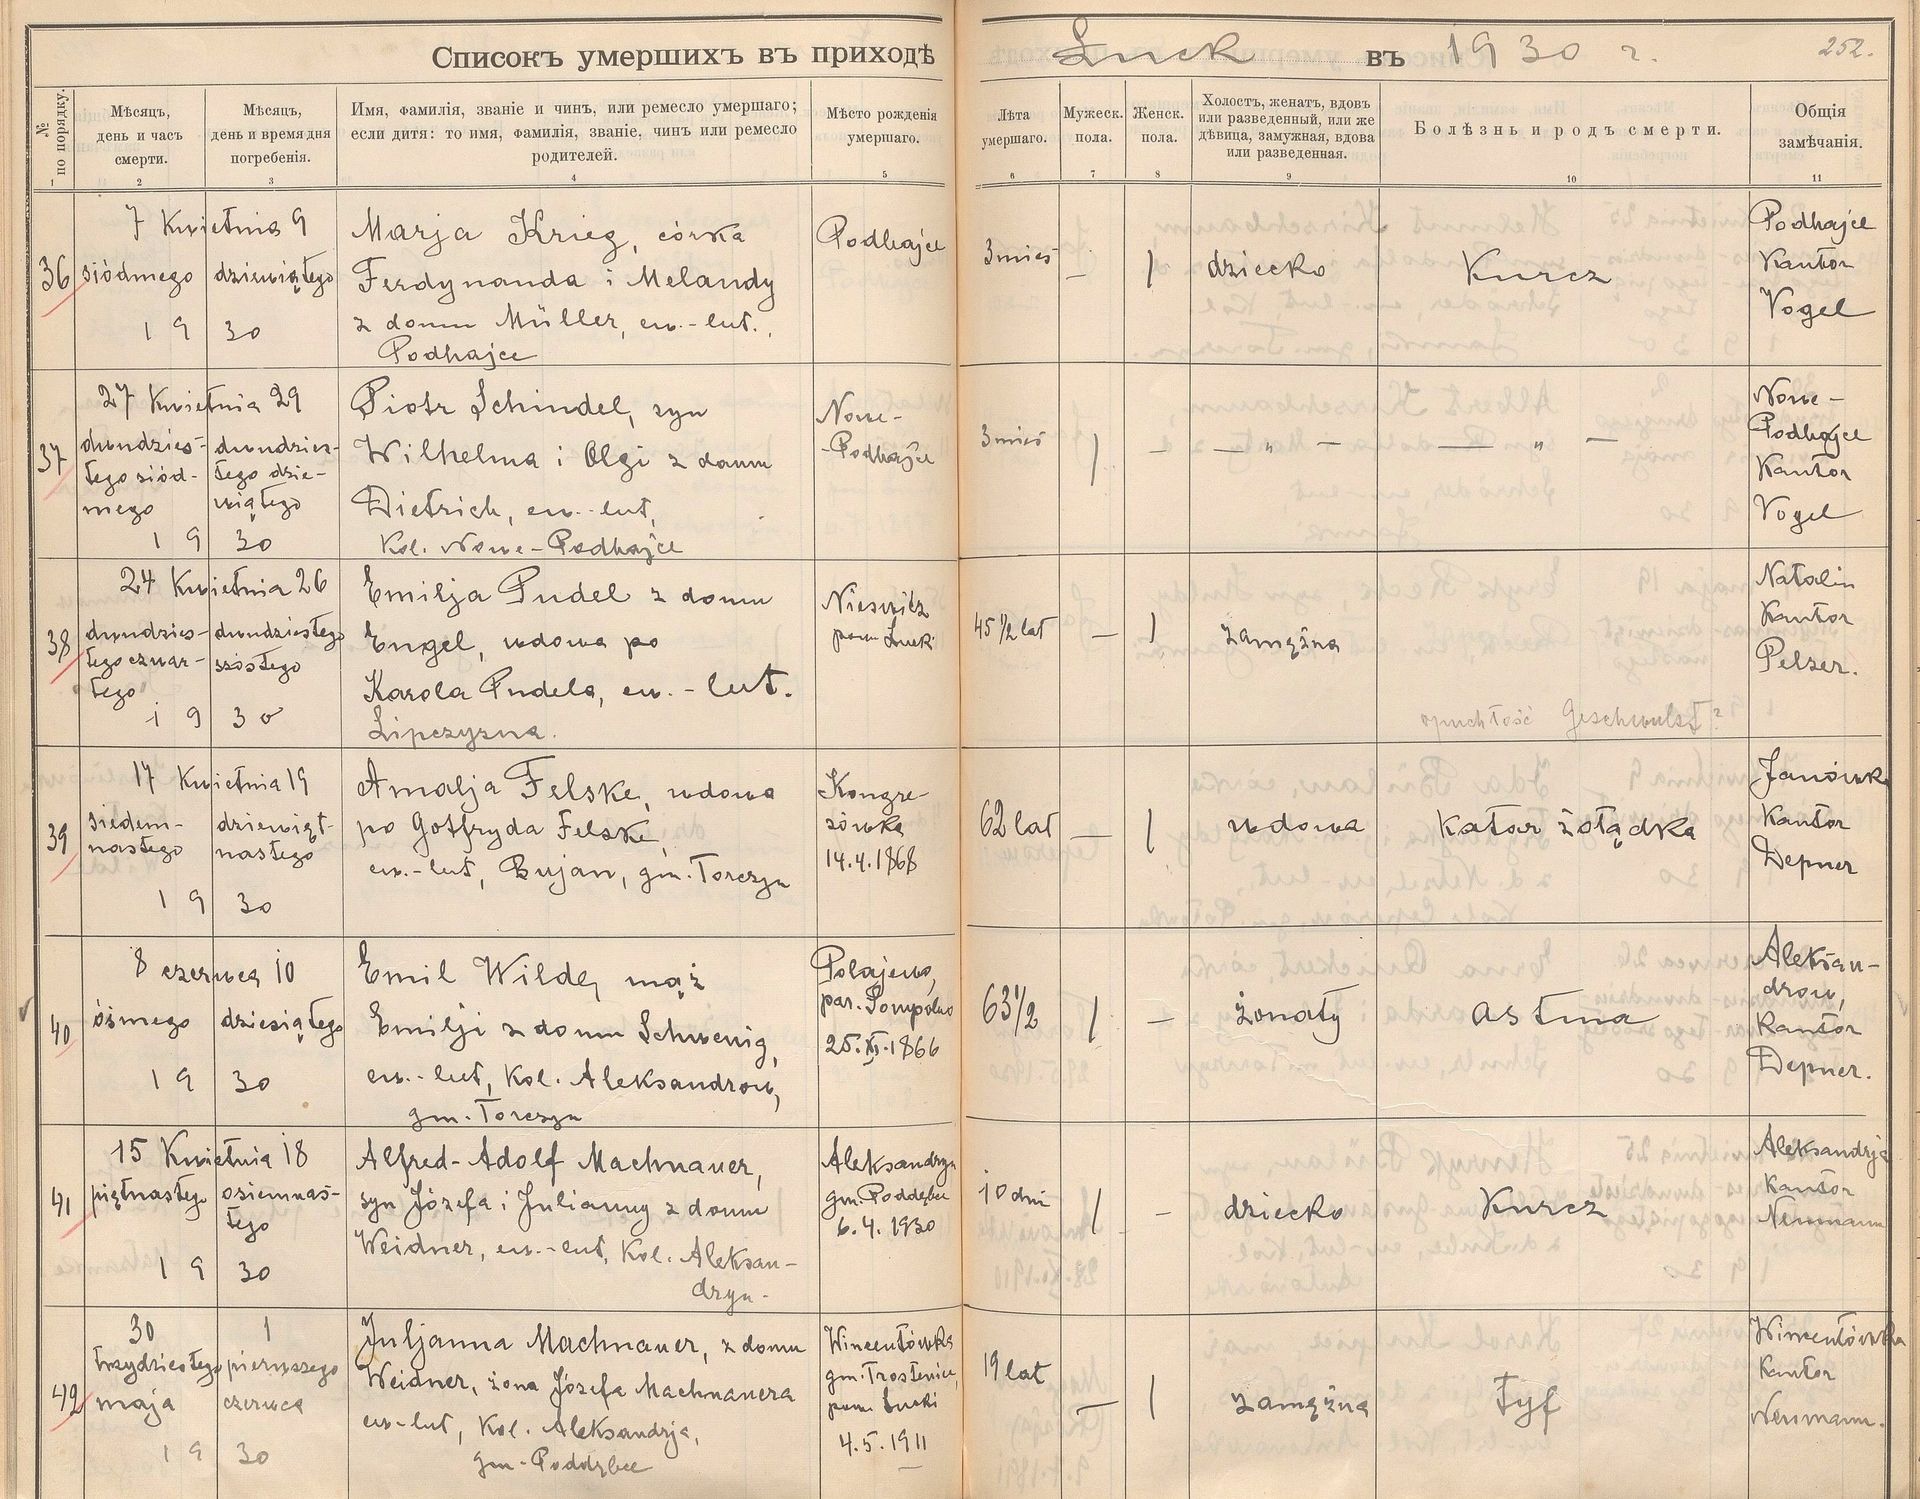 Списокъ умершихъ въ приходѣ Łuck въ 1930 г. 252.
№ по порядку.
Мѣсяцъ, день и часъ смерти.
Мѣсяцъ, день и время дня погребенія.
Имя, фамилія, званіе и чинъ, или ремесло умершаго;
если дитя: то имя, фамилія, званіе, чинъ или ремесло
родителей.
Мѣсто рожденія
умершаго.
Лѣта
умершаго.
Мужеск.
пола.
Женск.
пола.
Холостъ, женатъ, вдовъ
или разведенный, или же
дѣвица, замужная, вдова
или разведенная.
Болѣзнь и родъ смерти.
Общія
замѣчанія.
1 2 3 4 5 6 7 8 9 10 11
36
7 Kwietnia 9
siódmego dziewiątego
19 30
Marja Krieg, córka
Ferdynanda i Melandy
z domu Müller, ew.-lut.,
Podhajce
Podhajce
3 mieś
— 1
dziecko
Kurcz
Podhajce
Kantor
Vogel
37
27 Kwietnia 29
dwudzies- dwudzies-
tego siód- tego dzie-
mego wiątego
19 30
Piotr Schindel, syn
Wilhelma i Olgi z domu
Dietrich, ew.-lut,
Kol. Nowe-Podhajce
Nowe-
-Podhajce
3 mieś
1 —
— " —
— " —
Nowe-
Podhajce
Kantor
Vogel
38
24 Kwietnia 26
dwudzies- dwudziestego
tego czwar- szóstego
tego
19 30
Emilja Pudel z domu
Engel, wdowa po
Karola Pudela, ew.-lut.
Lipczyzna.
Nieswicz
pow. Łucki
45 1/2 lat
— 1
zamężna
opuchłość Geschwulst?
Natalin
Kantor
Pelzer.
39
17 Kwietnia 19
siedem- dziewięt-
nastego nastego
19 30
Amalja Felske, wdowa
po Gotfryda Felske,
ew.-lut, Bujan, gm. Torczyn
Kongre-
sówka
14.4.1868
62 lat
— 1
wdowa
Katar żołądka
Janówka
Kantor
Depner
40
8 czerwca 10
ósmego dziesiątego
19 30
Emil Wilde, mąż
Emilji z domu Schwenig,
ew.-lut, Kol. Aleksandrow,
gm. Torczyn
Polajewo,
par. Sompolno
25.XI.1866
63 1/2
1 —
żonaty
astma
Aleksan-
drow,
Kantor
Depner.
41
15 Kwietnia 18
piętnastego osiemnas-
tego
19 30
Alfred-Adolf Machnauer,
syn Józefa i Julianny z domu
Weidner, ew.-lut, Kol. Aleksan-
dryn.
Aleksandryn
gm. Poddębce
6.4.1930
10 dni
1 —
dziecko
Kurcz
Aleksandrja
Kantor
Neumann
42
30 1
trzydziestego pierwszego
maja czerwca
19 30
Juljanna Machnauer, z domu
Weidner, żona Józefa Machnauera
ew-lut, Kol. Aleksandrja,
gm. Poddębce
Wincentówka
gm. Trosteniec,
pow. Łucki
4.5.1911
19 lat
— 1
zamężna
Tyf
Wincentówka
Kantor
Neumann.